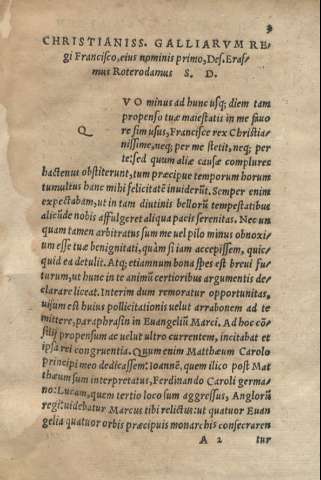 3
CHRISTIANISS. GALLIARVM RE⸗
gi Francisco, eius nominis primo, Des. Eras⸗
mus Roterodamus S. D.
Q
VO minus ad hunc usq; diem tam
propenso tuæ maiestatis in me fauo
re sim usus, Francisce rex Christia⸗
nissime, neq; per me stetit, neq; per
te: sed quum aliæ causæ complures
hactenus obstiterunt, tum præcipue temporum horum
tumultus hanc mihi felicitatē inuiderūt. Semper enim
expectabam, ut in tam diutinis bellorū tempestatibus
alicūde nobis affulgeret aliqua pacis serenitas. Nec un
quam tamen arbitratus sum me uel pilo minus obnoxi
um esse tuæ benignitati, quàm si iam accepissem, quic⸗
quid ea detulit. Atq; etiamnum bona spes est breui fu⸗
turum, ut hunc in te animū certioribus argumentis de⸗
clarare liceat. Interim dum remoratur opportunitas,
uisum est huius pollicitationis uelut arrabonem ad te
mittere, paraphrasin in Euangeliū Marci. Ad hoc cō⸗
silij propensum ac uelut ultro currentem, incitabat et
ipsa rei congruentia. Quum enim Matthæum Carolo
principi meo dedicassem: Ioannē, quem ilico post Mat
thæum sum interpretatus, Ferdinando Caroli germa⸗
no: Lucam, quem tertio loco sum aggressus, Anglorū
regi: uidebatur Marcus tibi relictus: ut quatuor Euan⸗
gelia quatuor orbis præcipuis monarchis consecraren
A 2 tur